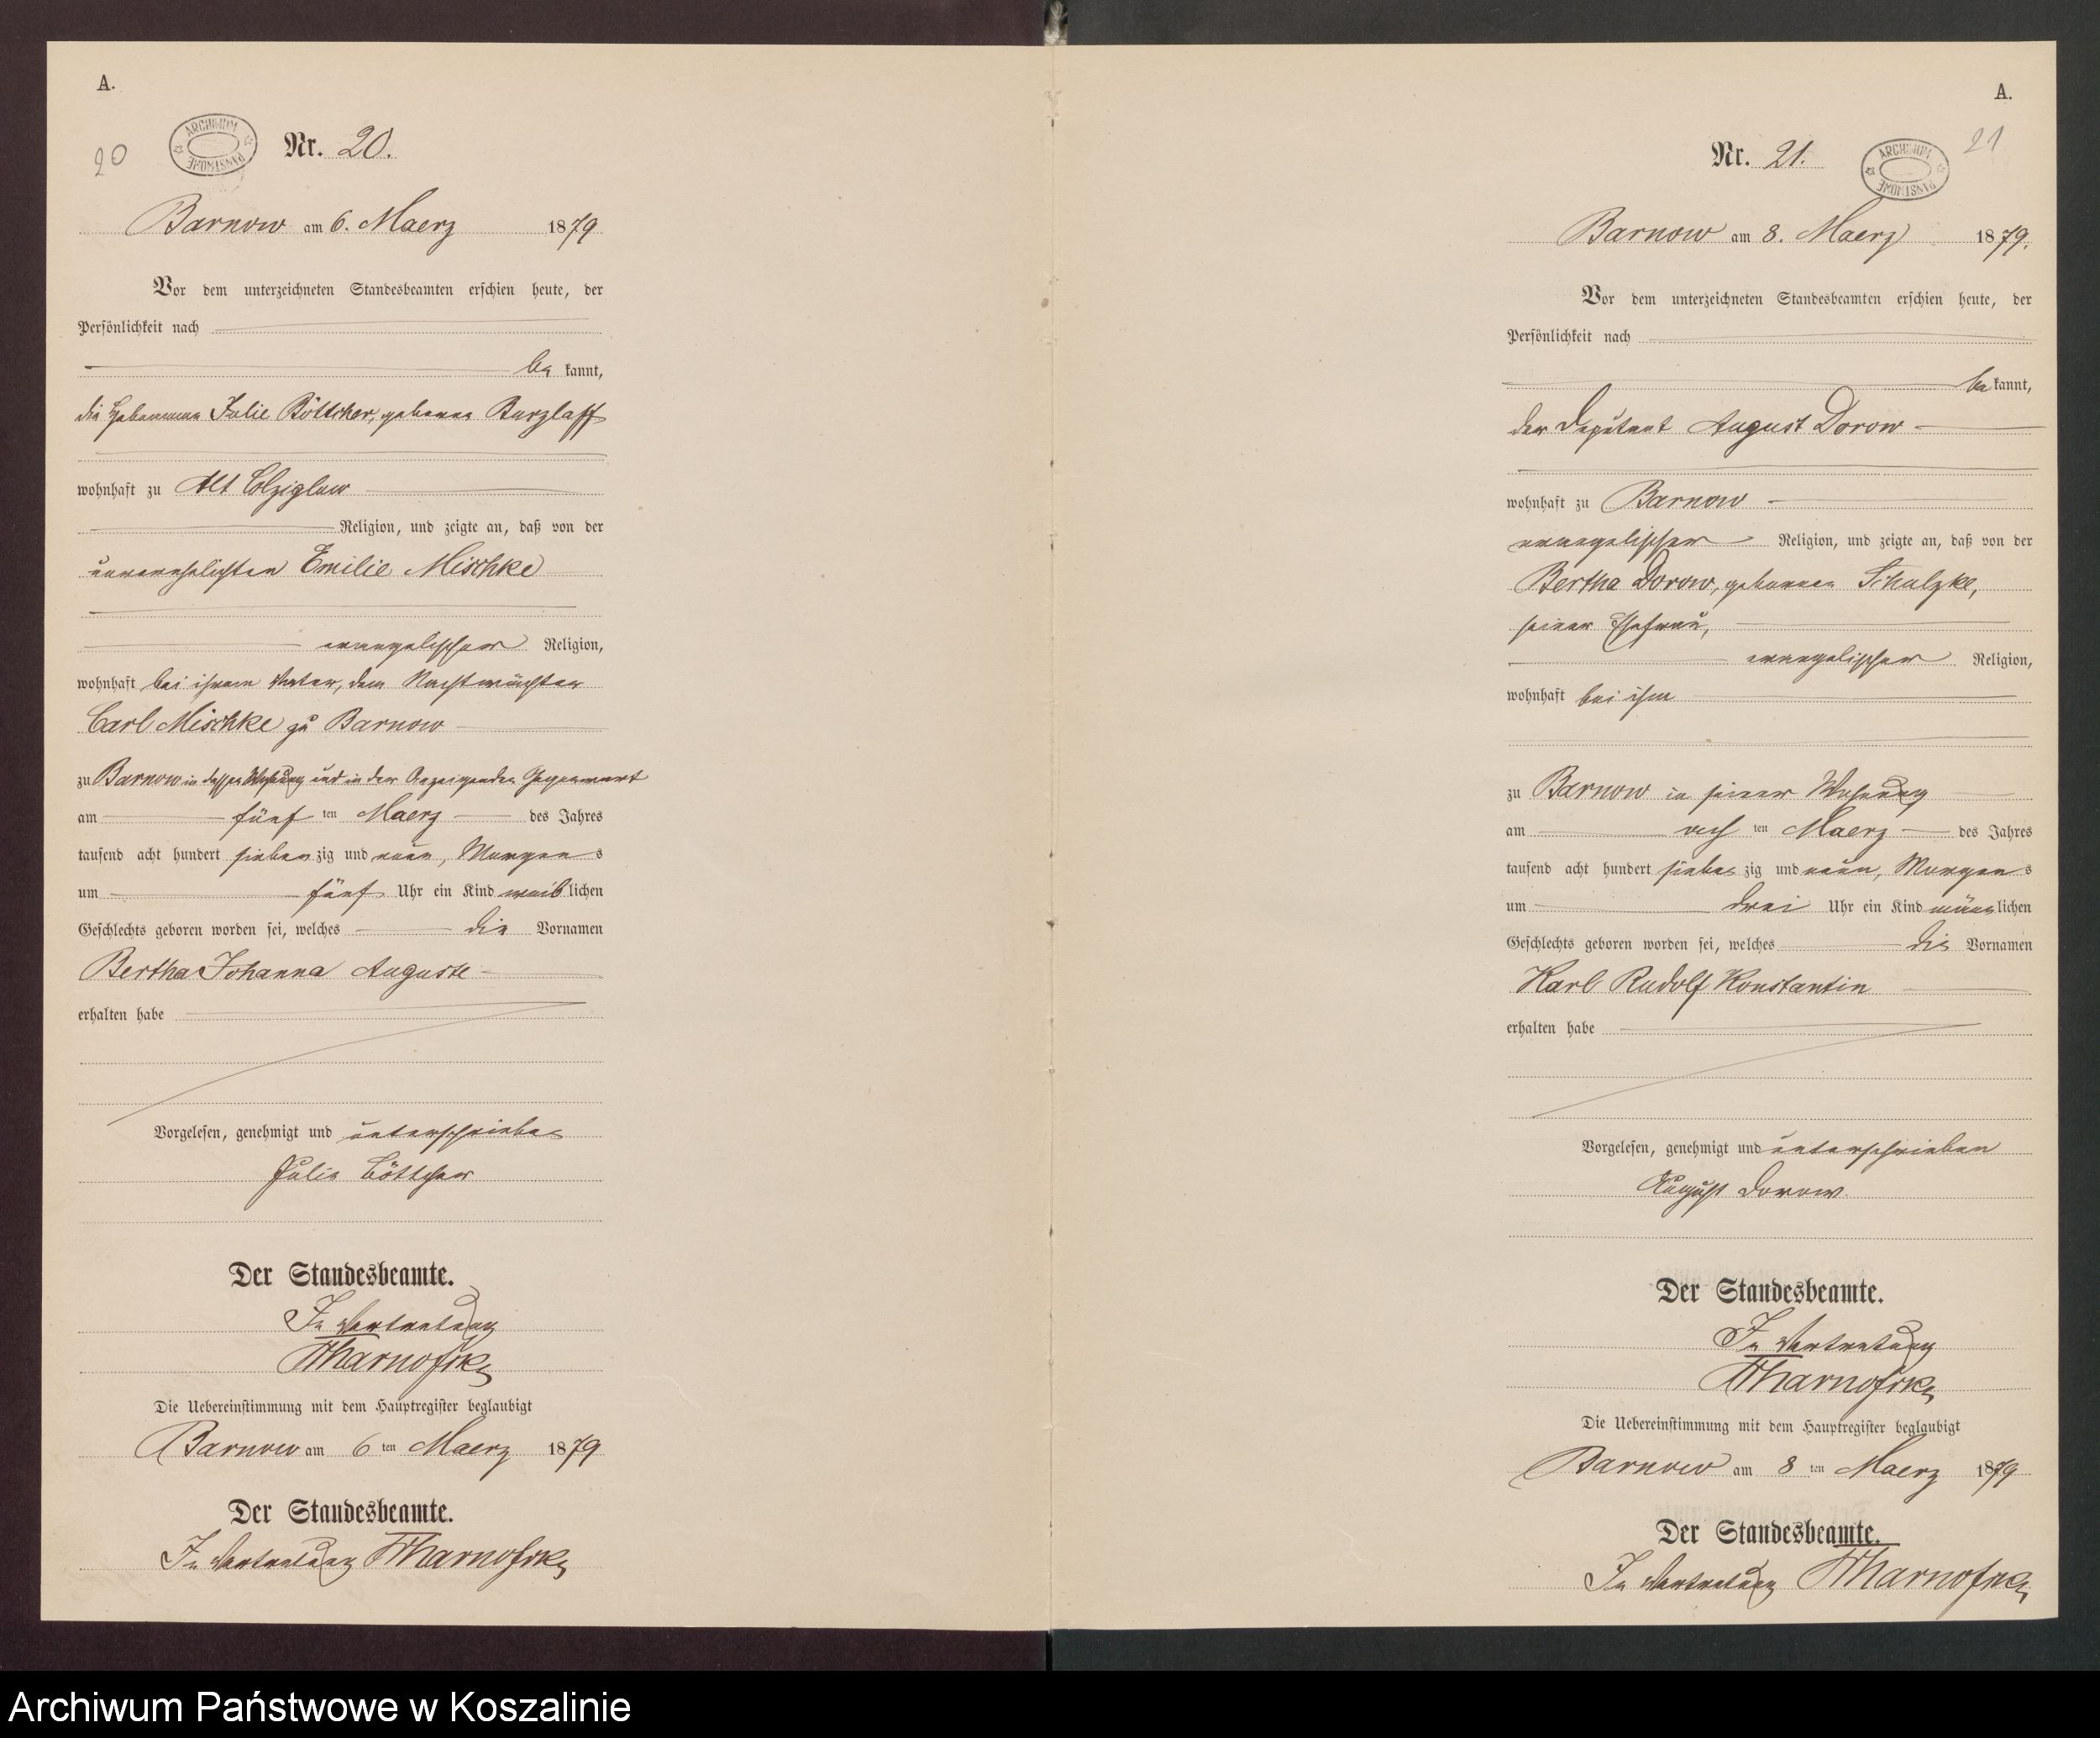 A.
20
ARCHIWUM PAŃSTWOWE
Nr. 20.
Barnow am 6. Maerz 1879
Vor dem unterzeichneten Standesbeamten erschien heute, der
Persönlichkeit nach
be kannt,
die Hebamme Julie Böttcher, geborene Burzlaff
wohnhaft zu Alt Colziglow
Religion, und zeigte an, daß von der
unverehelichten Emilie Mischke
evangelischer Religion,
wohnhaft bei ihrem Vater, dem Nachtwächter
Carl Mischke zu Barnow
zu Barnow in dessen Wohnung und in der Anzeigenden Gegenwart
am fünf ten Maerz des Jahres
tausend acht hundert sieben zig und neun, Morgen s
um fünf Uhr ein Kind weib lichen
Geschlechts geboren worden sei, welches die Vornamen
Bertha Johanna Auguste
erhalten habe
Vorgelesen, genehmigt und unterschrieben
Julie Böttcher
Der Standesbeamte.
In Vertretung
Die Uebereinstimmung mit dem Hauptregister beglaubigt
Barnow am 6 ten Maerz 1879
Der Standesbeamte.
In Vertretung
A.
Nr. 21.
ARCHIWUM PAŃSTWOWE
21
Barnow am 8. Maerz 1879.
Vor dem unterzeichneten Standesbeamten erschien heute, der
Persönlichkeit nach
be kannt,
der Deputant August Dorow
wohnhaft zu Barnow
evangelischer Religion, und zeigte an, daß von der
Bertha Dorow, geborenen Schulzke,
seiner Ehefrau,
evangelischer Religion,
wohnhaft bei ihm
zu Barnow in seiner Wohnung
am ach ten Maerz des Jahres
tausend acht hundert sieben zig und neun, Morgen s
um drei Uhr ein Kind männ lichen
Geschlechts geboren worden sei, welches die Vornamen
Karl Rudolf Konstantin
erhalten habe
Vorgelesen, genehmigt und unterschrieben
August Dorow.
Der Standesbeamte.
In Vertretung
Die Uebereinstimmung mit dem Hauptregister beglaubigt
Barnow am 8 ten Maerz 1879
Der Standesbeamte.
In Vertretung
Archiwum Państwowe w Koszalinie